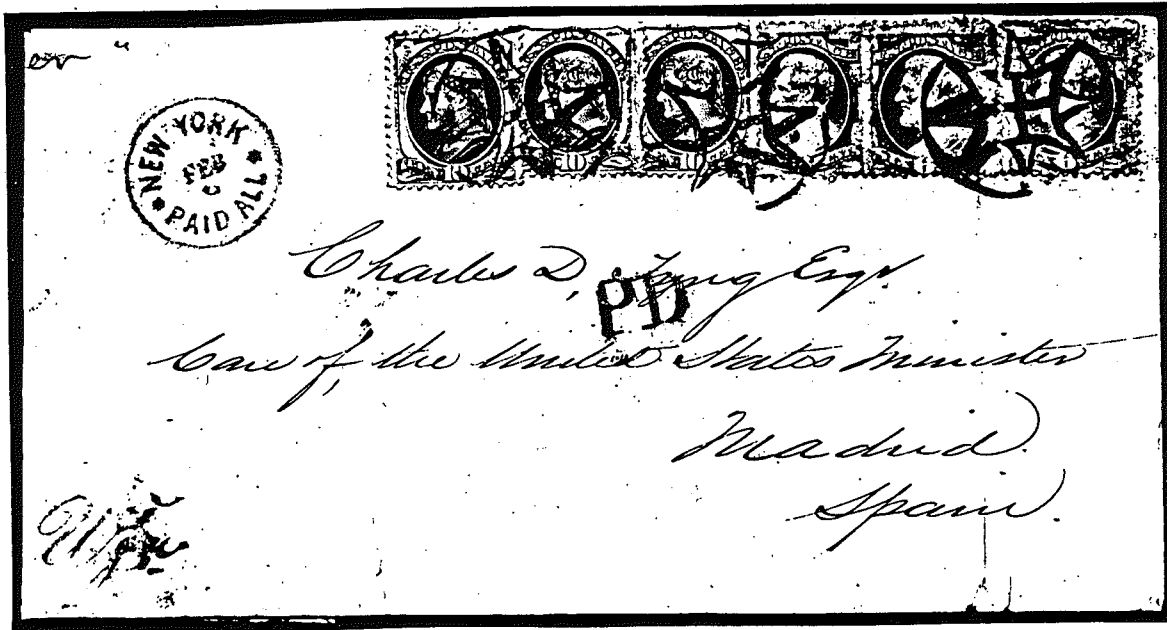 NEW YORK
FEB
PAID ALL
10
10
10
Charles D, Tyng Esqr.
PD
Care of, the United States Minister
Madrid.
Spain.